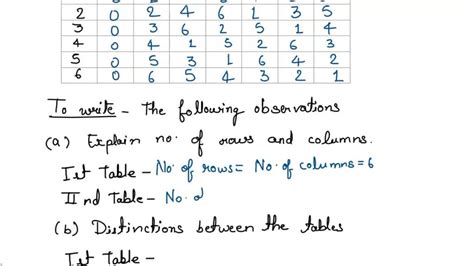 2 0 2 4 6 1 3 5
3 0 3 6 2 5 1 4
4 0 4 1 5 2 6 3
5 0 5 3 1 6 4 2
6 0 6 5 4 3 2 1
To write - The following observations
(a) Explain no. of rows and columns.
Ist Table - No. of rows = No. of columns = 6
IInd Table - No.
(b) Distinctions between the tables
Ist Table -